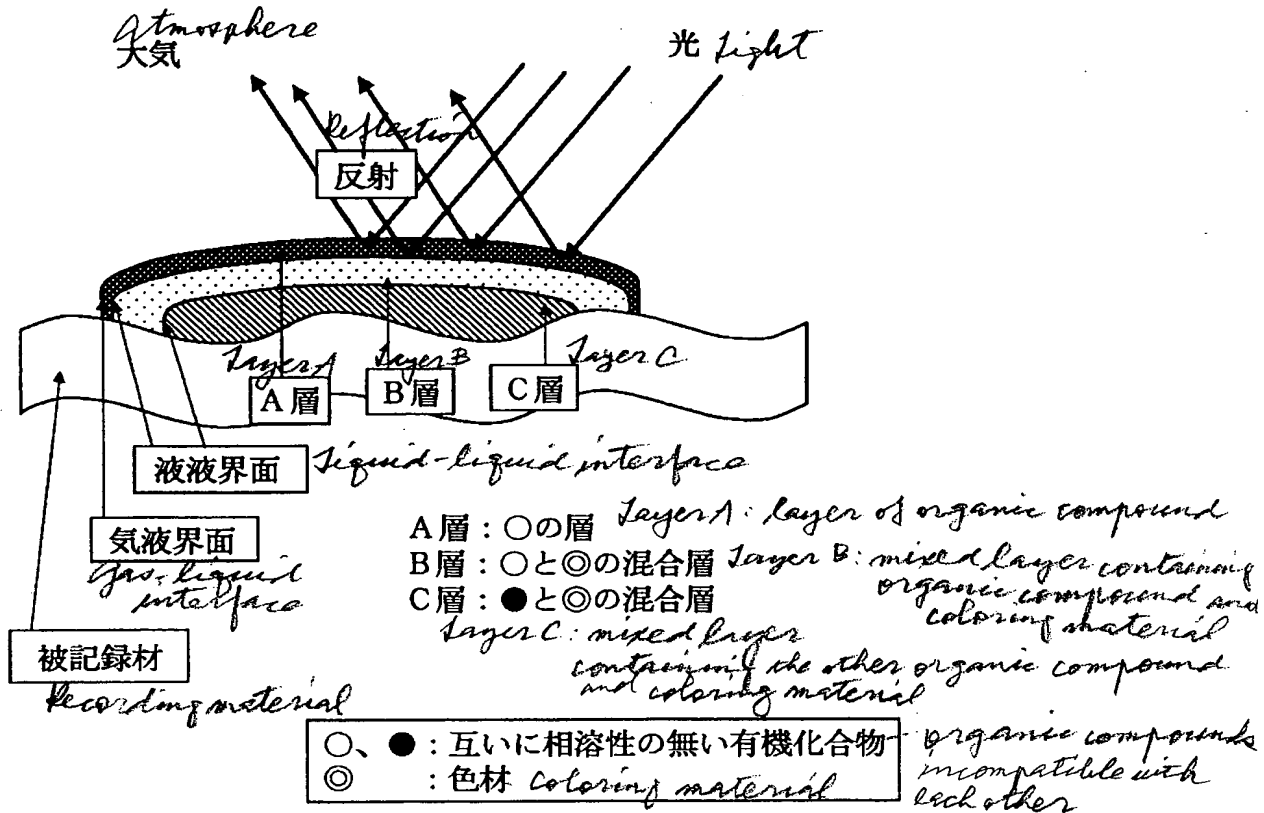 Atmosphere
大気
光 Light
Reflection
反射
Layer A
Layer B
Layer C
A層
B層
C層
液液界面 Liquid-liquid interface
気液界面
Gas-liquid
interface
A層：○の層 Layer A: layer of organic compound
B層：○と◎の混合層 Layer B: mixed layer containing
organic compound and
coloring material
C層：●と◎の混合層
Layer C: mixed layer
containing the other organic compound
and coloring material
被記録材
Recording material
○、●：互いに相溶性の無い有機化合物 - organic compounds
incompatible with
each other
◎：色材 coloring material